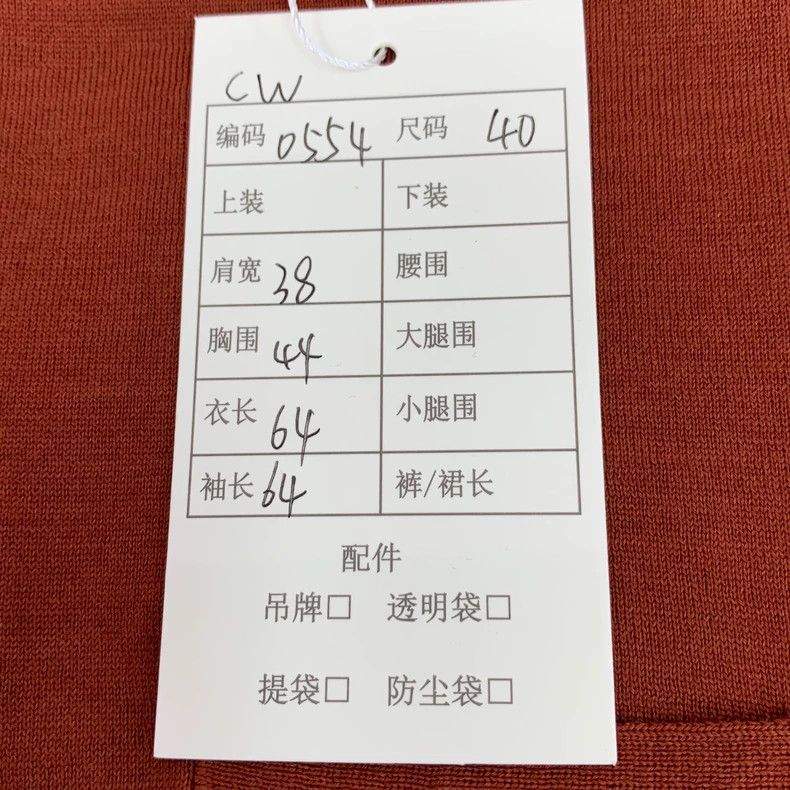 CW
编码 0554 尺码 40
上装 下装
肩宽 38 腰围
胸围 44 大腿围
衣长 64 小腿围
袖长 64 裤/裙长
配件
吊牌□ 透明袋□
提袋□ 防尘袋□